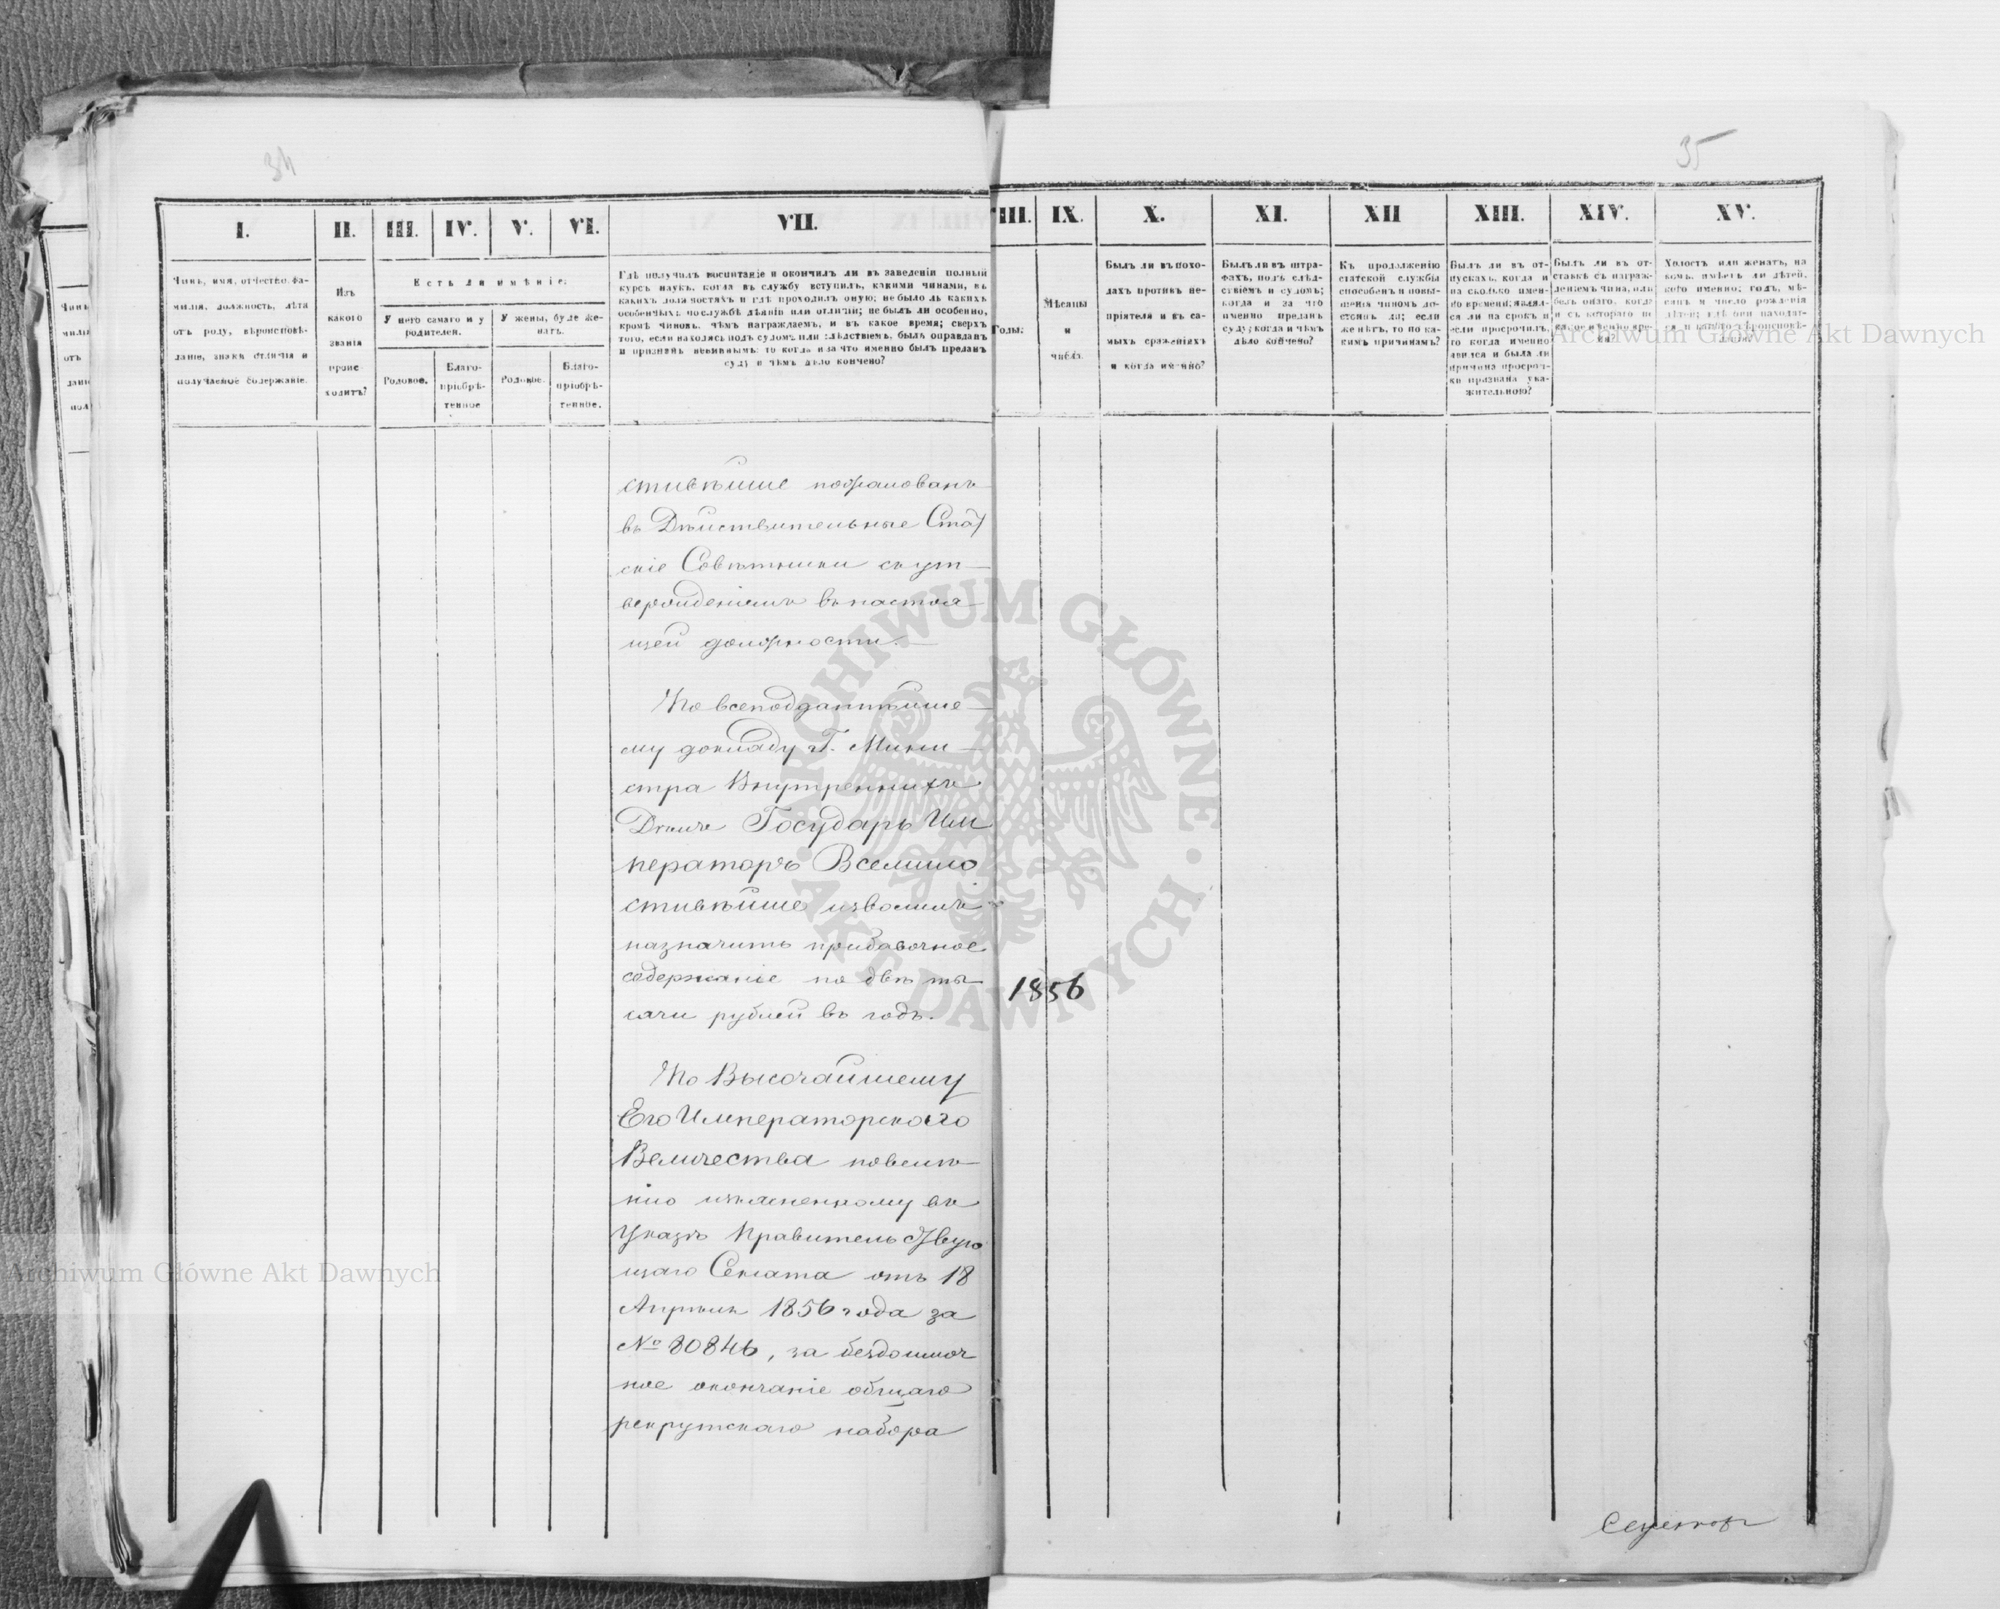 34
35
I.
II.
III.
IV.
V.
VI.
VII.
VIII.
IX.
X.
XI.
XII
XIII.
XIV.
XV.
Чинъ, имя, отчество, фа-
милія, должность, лѣта
отъ роду, вѣроисповѣ-
даніе, знаки отличія и
получаемое содержаніе.
Изъ
какого
званія
проис
ходитъ?
Есть ли имѣніе:
У него самаго и у
родителей.
У жены, буде же-
натъ.
Родовое.
Благо-
пріобрѣ-
тенное
Родовое.
Благо-
пріобрѣ-
тенное.
Гдѣ получилъ воспитаніе и окончилъ ли въ заведеніи полный
курсъ наукъ, когда въ службу вступилъ, какими чинами, въ
какихъ должностяхъ и гдѣ проходилъ оную; не было ль какихъ
особенныхъ по службѣ дѣяній или отличій; не былъ ли особенно,
кромѣ чиновъ, чѣмъ награждаемъ, и въ какое время; сверхъ
того, если находясь подъ судомъ или слѣдствіемъ, былъ оправданъ
и признанъ невиннымъ: то когда и за что именно былъ преданъ
суду и чѣмъ дѣло кончено?
Годы.
Мѣсяцы
и
числа.
Былъ ли въ похо-
дахъ противъ не-
пріятеля и въ са-
мыхъ сраженіяхъ
и когда именно?
Былъ ли въ штра-
фахъ, подъ слѣд-
ствіемъ и судомъ;
когда и за что
именно преданъ
суду; когда и чѣмъ
дѣло кончено?
Къ продолженію
статской службы
способенъ и повы-
шенія чиномъ до-
стоинъ ли; если
же нѣтъ, то по ка-
кимъ причинамъ?
Былъ ли въ от-
пускахъ, когда и
на сколько имен-
но времени; являл-
ся ли на срокъ и
если просрочилъ,
то когда именно
явился и была ли
причина просроч-
ки признана ува-
жительною?
Былъ ли въ от-
ставкѣ съ награж-
деніемъ чина, или
безъ онаго, когда
и съ котораго по
какое именно вре-
мя?
Холостъ или женатъ, на
комъ, имѣетъ ли дѣтей,
кого именно; годъ, мѣ-
сяцъ и число рожденія
дѣтей; гдѣ они находят-
ся и какого вѣроисповѣ-
данія?
стивѣйше пожалованъ
въ Дѣйствительные Стат
скіе Совѣтники съ ут-
вержденіемъ въ настоя
щей должности.
По всеподданнѣйше-
му докладу Г. Мини-
стра Внутреннихъ
Дѣлъ Государь Им
ператоръ Всемило
стивѣйше изволилъ
назначить прибавочное
содержаніе по двѣ ты
сячи рублей въ годъ.
1856
По Высочайшему
Его Императорскаго
Величества повелѣ-
нію изъясненному въ
Указѣ Правительствую
щаго Сената отъ 18
Апрѣля 1856 года за
№ 80846, за бездоимоч
ное окончаніе общаго
рекрутскаго набора
ARCHIWUM GŁÓWNE
AKT DAWNYCH
Archiwum Główne Akt Dawnych
Archiwum Główne Akt Dawnych